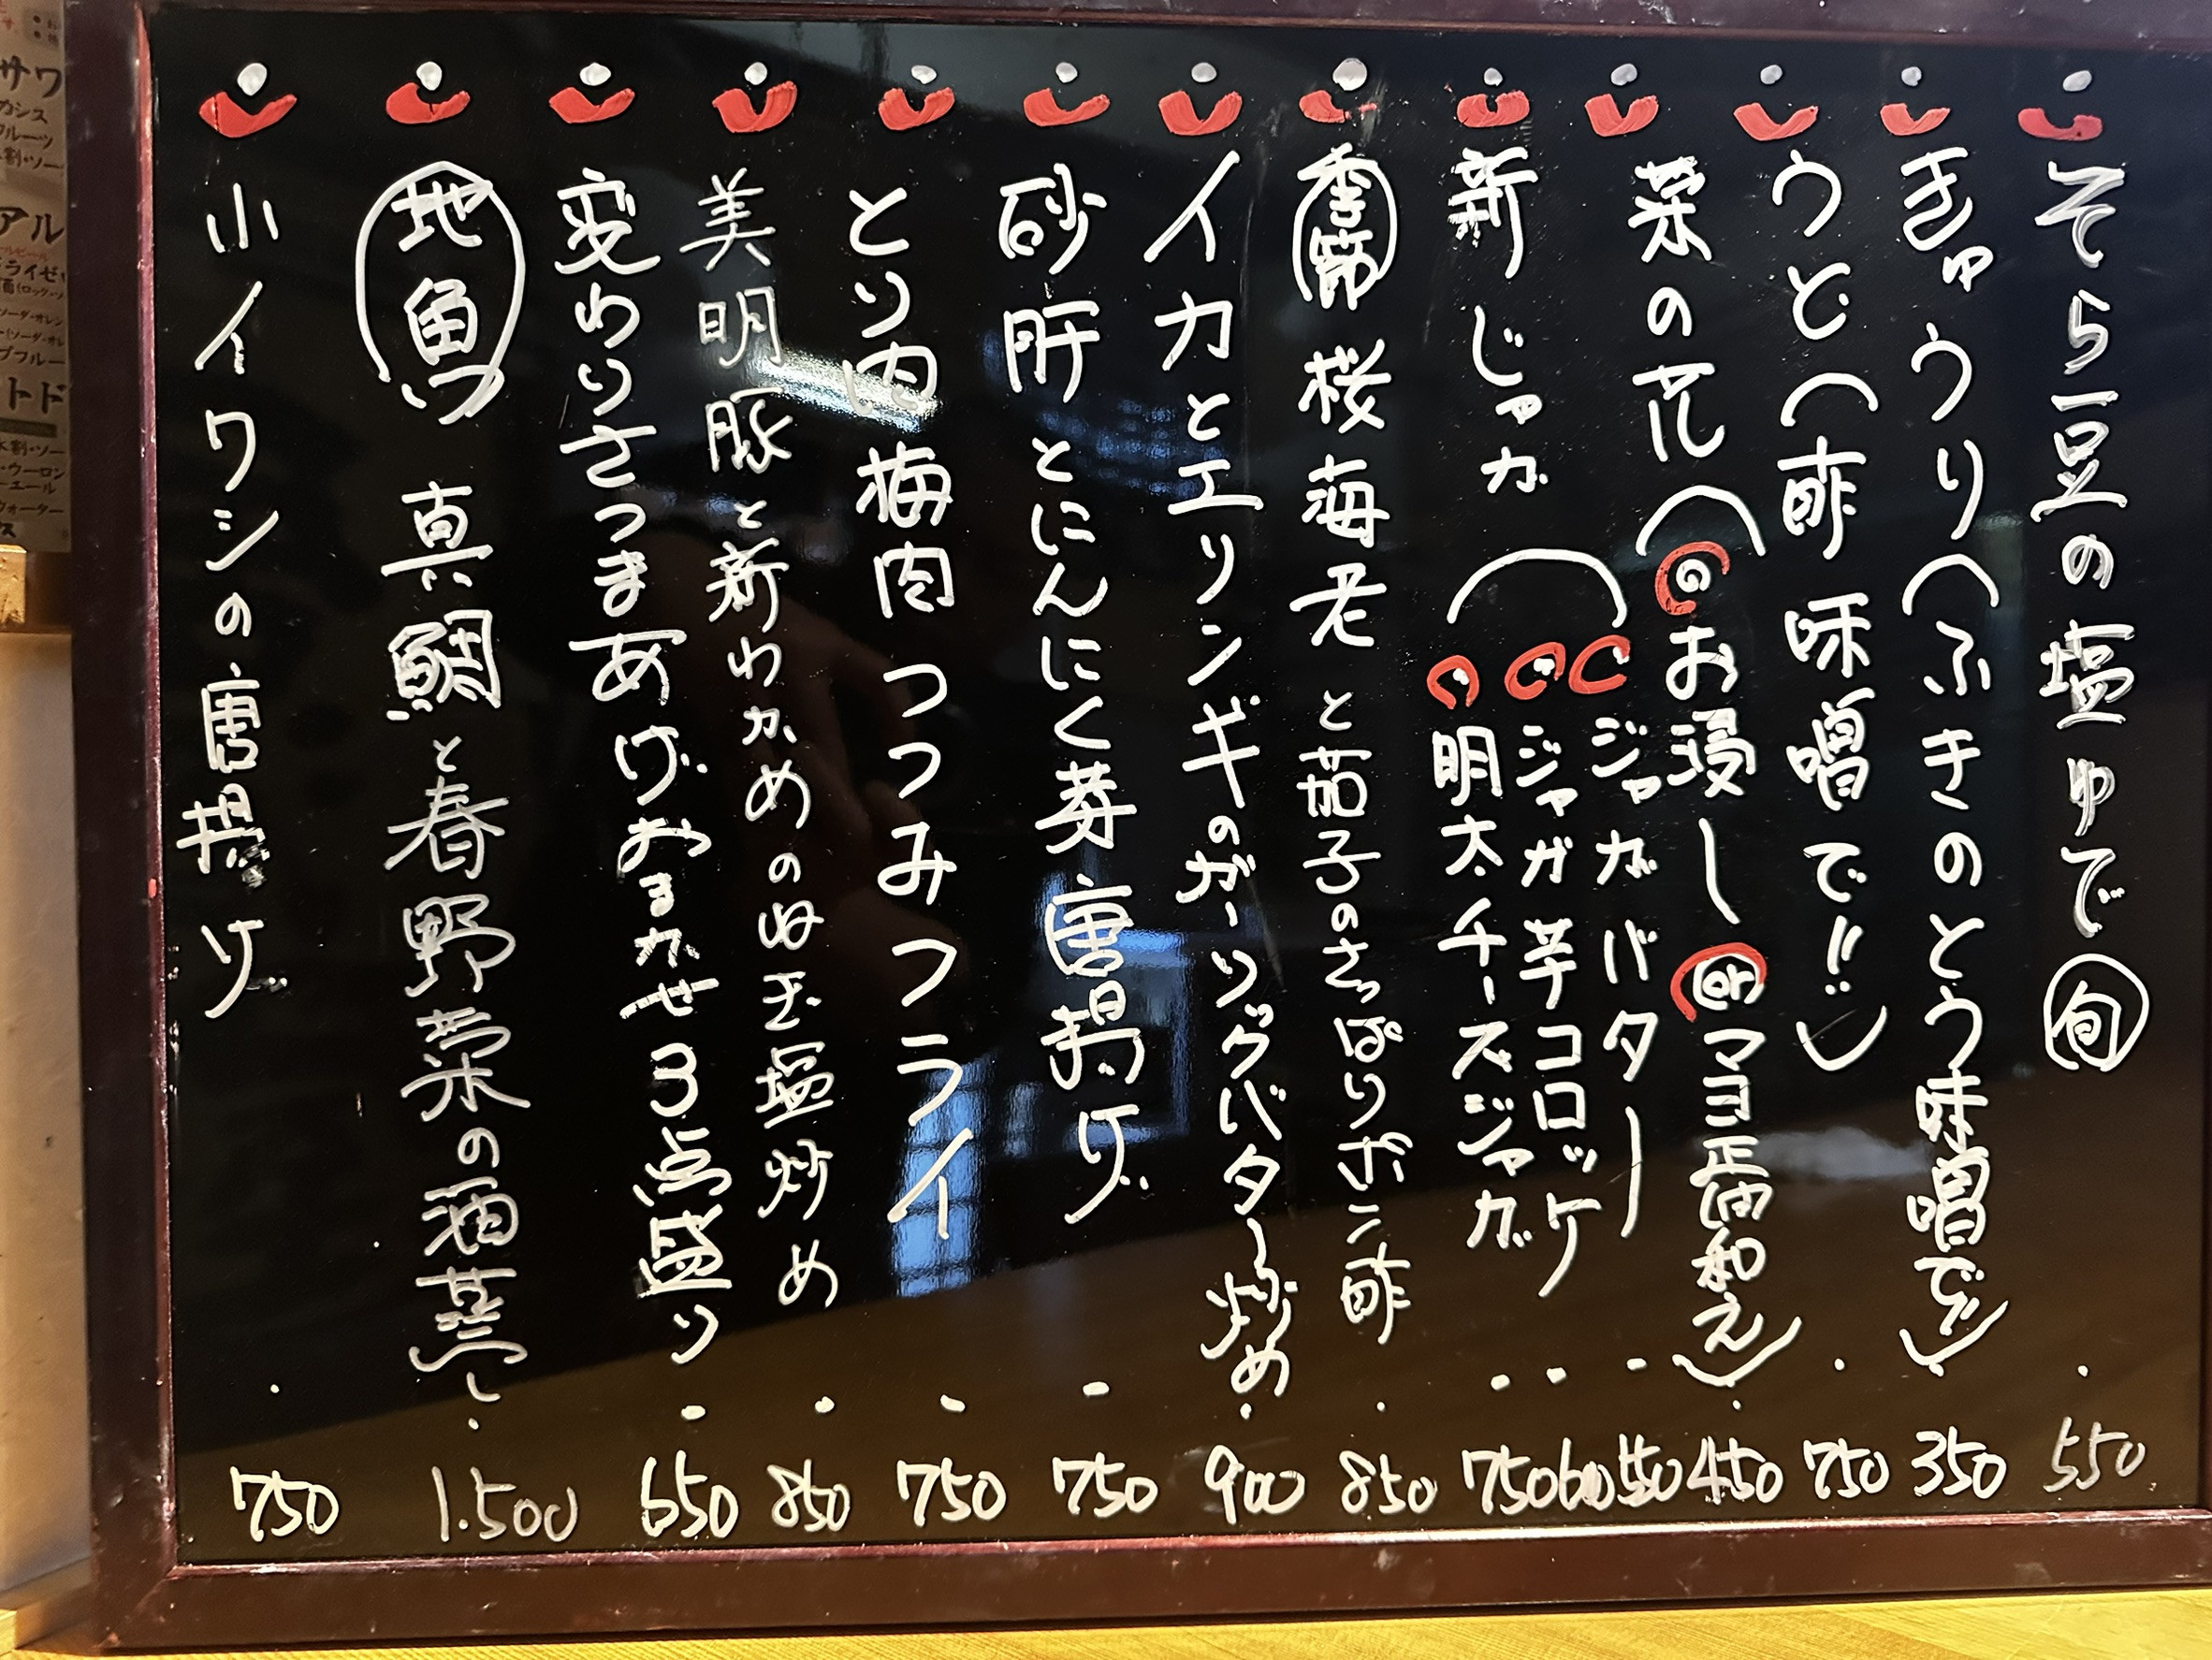 そら豆の塩ゆで 旬 550
きゅうり(ふきのとう味噌で!!) 350
うど(酢味噌で!!) 750
菜の花(お浸し or マヨ正油和え) 450
新じゃが
ジャガバター
ジャガ芋コロッケ
明太チーズジャガ 750
季節 桜海老と茄子のさっぱりポン酢 850
イカとエリンギのガーリックバター炒め 900
砂肝とにんにく芽唐揚げ 750
とり肉梅肉つつみフライ 750
美明豚と新わかめの
塩炒め 850
変わりさつまあげおまかせ3点盛り 650
地魚 真鯛と春野菜の酒蒸し 1.500
小イワシの唐揚げ 750
サワ
カシス
フルーツ
アル
トド